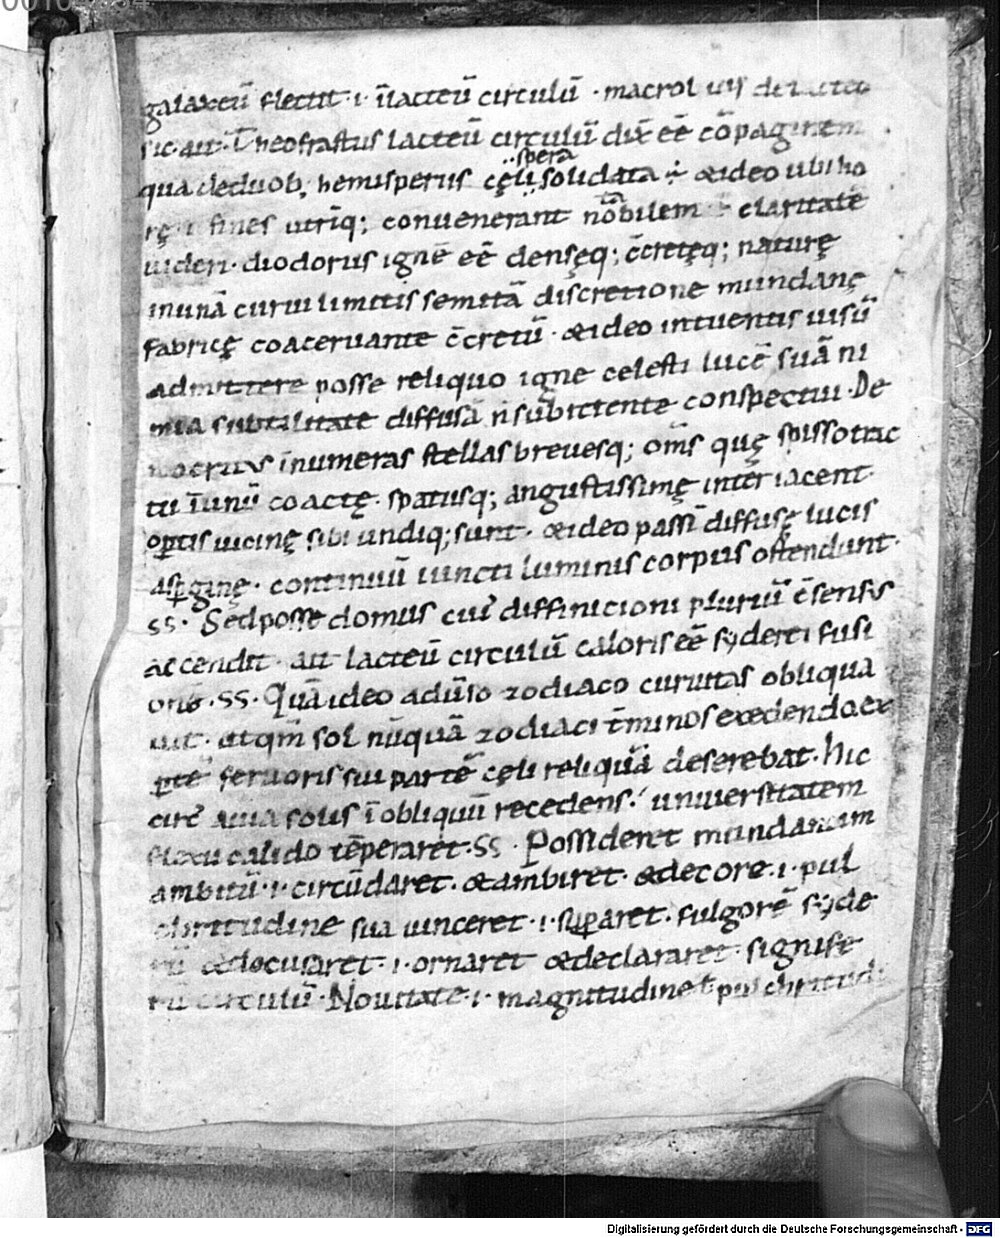 galaxeū flectit · i · ī lacteū circulū · macrob
sic ait · Theofrastus lacteū circulū dix̄ eē cōpaginem
qua deduob; hemisperiis cęli spera solidata ÷ &ideo ubi ho
fines utriq; convenerant nōbilem claritatē
uideri · diodorus ignē eē densęq; c̄cretęq; naturę
inunā curui limitis semitā discretione mundanę
fabricę coacervante c̄cretū · &ideo intuentis uisū
admittere posse reliquo igne celesti lucē suā ni
mia subtilitate diffusā n̄ subiciente conspectui · De
mocritus īnumeras stellas brevesq; om̄s quę spisso trac
tu ī unū coactę · spatiisq; angustissimę interiacent
opertis uicinę sibi undiq; sunt · &ideo passī diffusę lucis
asp̱ginę · continuū iuncti luminis corpus ostendunt ·
SS · Sed posse domus cui diffinicioni pluriū c̄sensus
accendit · ait lacteū circulū caloris eē syderei fusi
onē · SS · Quā ideo adūso zodiaco curuitas obliqua
uit · ut qm̄ sol nūquā zodiaci t̄minos excedendo ex
p̱tē fervoris sui partē cęli reliquā deserebat · hic
circ̄ a uia solis ī obliquū recedens · universitatem
flexu calido tēperaret · SS · Possideret mundanum
ambitū · i · circūdaret · &ambiret · &decore · i · pul
chritudine sua uinceret · i · sup̱aret · fulgorē syde
rū &docusaret · i · ornaret &declararet · signife
rū circulū · Novitate · i · magnitudine ł pulchritudi
Digitalisierung gefördert durch die Deutsche Forschungsgemeinschaft - DFG